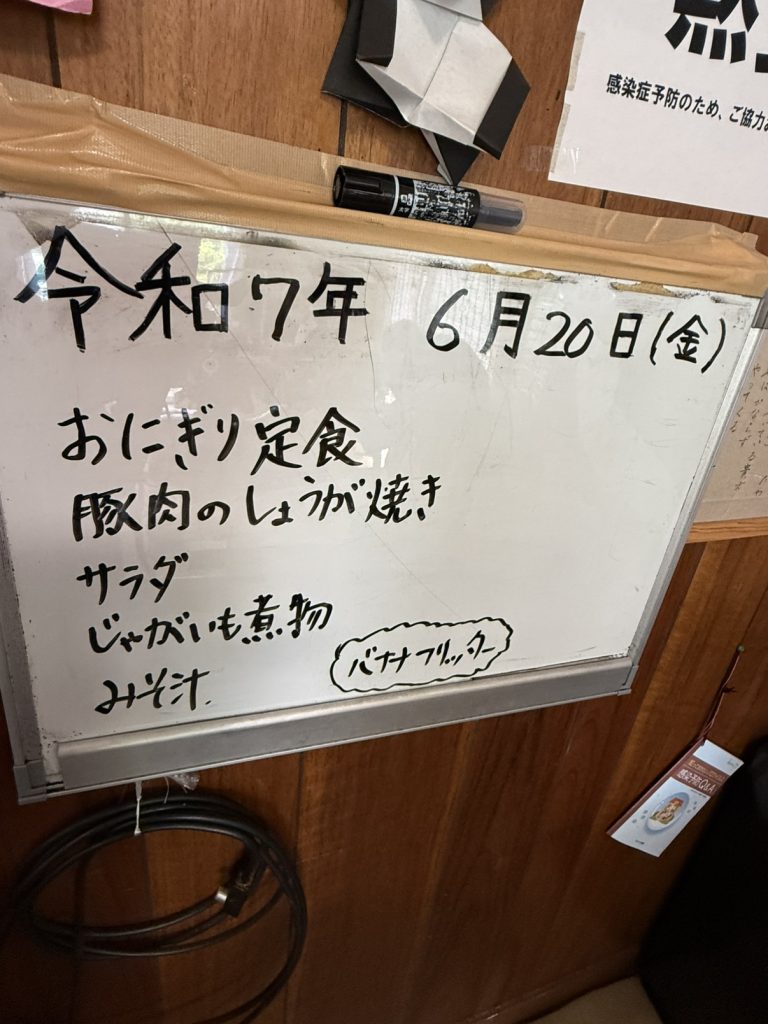 感染症予防のため、ご協力
令和7年 6月20日(金)
おにぎり定食
豚肉のしょうが焼き
サラダ
じゃがいも煮物
みそ汁
バナナフリッター
感染予防Q&A